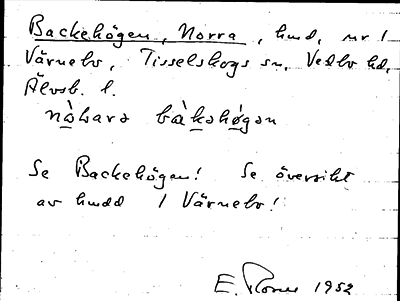 Backehögen, Norra, hmd, nr 1
Värnebo, Tisselskogs sn, Vedbo hd,
Älvsb. l.
nòwara bàkahögan
Se Backehögen! Se översikt
av hmdd / Värnebo!
E. 1952